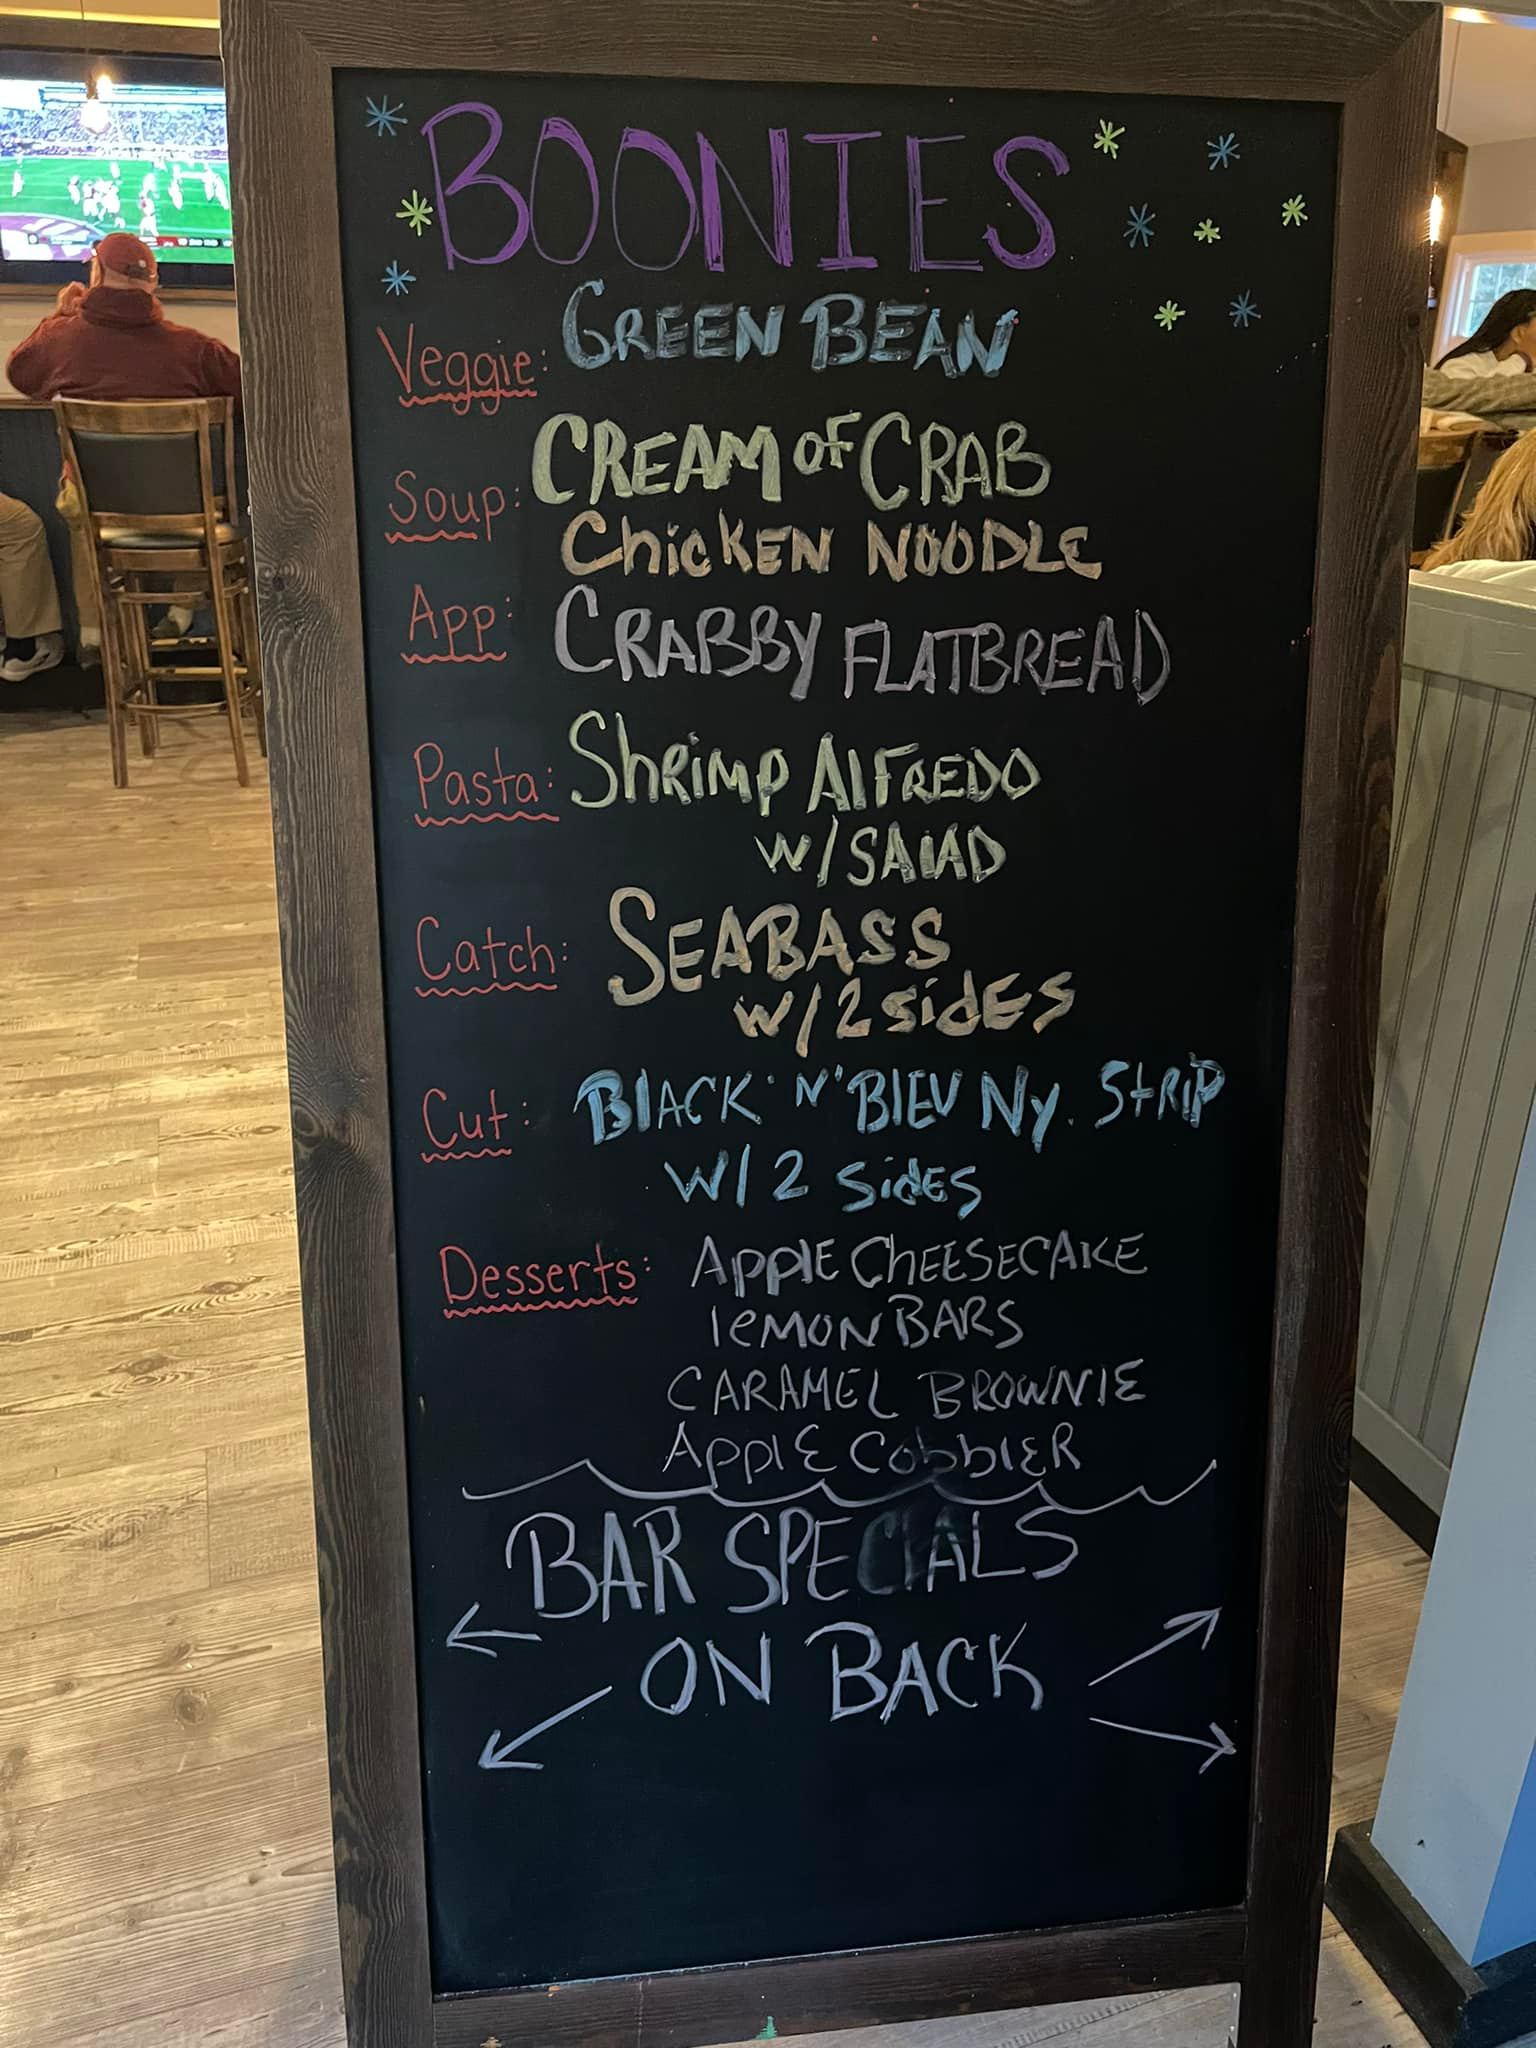 BOONIES
Veggie: GREEN BEAN
Soup: CREAM OF CRAB
ChicKEN NOODLE
App: CRABBY FLATBREAD
Pasta: ShRimp AlFREDO
w/SAlAD
Catch: SEABASS
w/2 sidES
Cut: BlACK 'N' BlEU Ny. StRiP
W/ 2 SidES
Desserts: APPlE ChEESECAKE
lEMON BARS
CARAMEL BROWNIE
APPlE CobblER
BAR SPECIALS
ON BACK